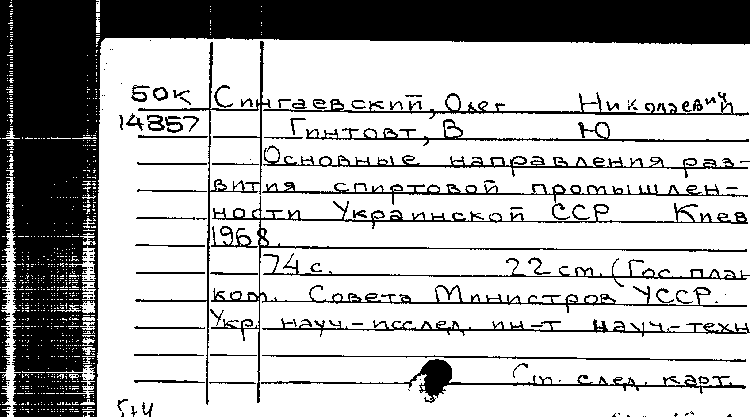 50К Сингаевский, Олег Николаевич
14357 Гинтовт, В Ю
Основные направления раз-
вития спиртовой промышлен-
ности Украинской ССР Киев
1968.
74 с. 22 cm. (Гос. план
ком. Совета Министров УССР.
Укр. науч.-исслед. ин-т науч.-техн
См. след. карт.